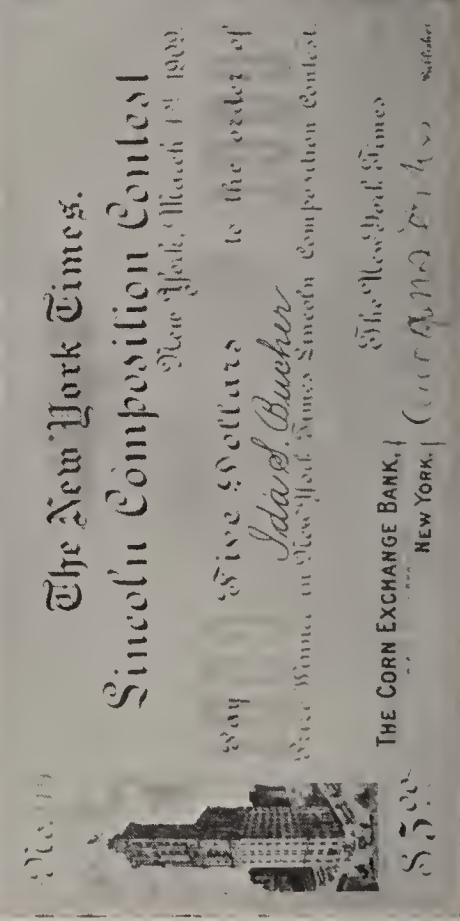 The New York Times.
Lincoln Composition Contest
New York, March 1st 1909.
Pay Five Dollars to the order of
Ida S. Bucher
Prize Winner in New York Times Lincoln Composition Contest.
The New York Times
THE CORN EXCHANGE BANK,
NEW YORK.
Publisher
$5.00